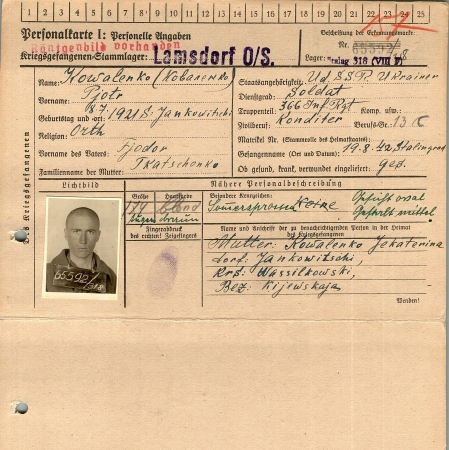 1 2 3 4 5 6 7 8 9 10 11 12 13 14 15 16 17 18 19 20 21 22 23 24 25
Personalkarte I: Personelle Angaben
Beschriftung der Erkennungsmarke
Röntgenbild vorhanden
Nr. 65592/
Kriegsgefangenen-Stammlager: Lamsdorf O/S.
Lager: Stalag 318 (VIII F)
Name: Kowalenko (Коваленко)
Staatsangehörigkeit: UdSSR. Ukrainer
Vorname: Pjotr
Dienstgrad: Soldat
Truppenteil: 366 Inf. Rgt. Komp. usw.:
Geburtstag und -ort: 1921 S. Jankowitschi
Zivilberuf: Konditer Berufs-Gr.: 13
Religion: Orth
Matrikel Nr. (Stammrolle des Heimatstaates):
Vorname des Vaters: Fjodor
Gefangennahme (Ort und Datum): 19.8.42 Stalingrad
Familienname der Mutter: Tkatschenko
Ob gesund, krank, verwundet eingeliefert: ges.
Des Kriegsgefangenen
Lichtbild
Nähere Personalbeschreibung
Größe Haarfarbe Besondere Kennzeichen:
Keine
Gesicht oval
Augen braun Sommersprossen
Gestalt mittel
Fingerabdruck
des rechten! Zeigefingers
Name und Anschrift der zu benachrichtigenden Person in der Heimat
des Kriegsgefangenen
Mutter: Kowalenko Jekaterina
Dorf: Jankowitschi,
Krs: Wassilkowski,
Bez: Kijewskaja
65592/318
Wenden!